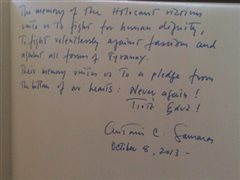 The memory of the Holocaust victims
unites us to fight for human dignity,
to fight relentlessly against fascism and
against all forms of tyranny.
Their memory unites us to a pledge from
the bottom of our hearts: Never again!
Ποτέ ξανά!
Antonis C. Samaras
October 8, 2013 -